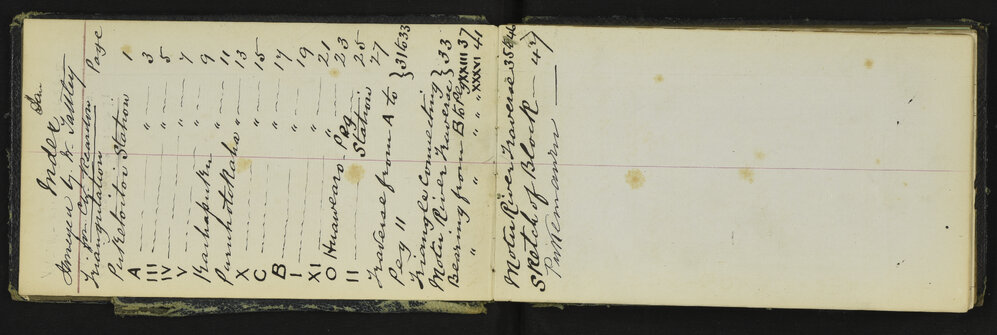 Index
Surveyed by W. Tattley Jan
for C. H. Reardon
Triangulation Page
Puketoitoi Station 1
A " 3
III " 5
IV " 7
V " 9
Kaihapukai " 11
Parihotokaha " 13
X " 15
C " 17
B " 19
I " 21
XI " 23
O Huaweraro Peg 25
II Station 27
Traverse from A to
Peg 11 } 31 to 33
Triangle Connecting
Motu River Traverse } 33
Bearing from B to Peg XXIII 37
" " " " XXXVI 41
Motu River Traverse 35 to 46
Sketch of Block — 47
Pukemaru —